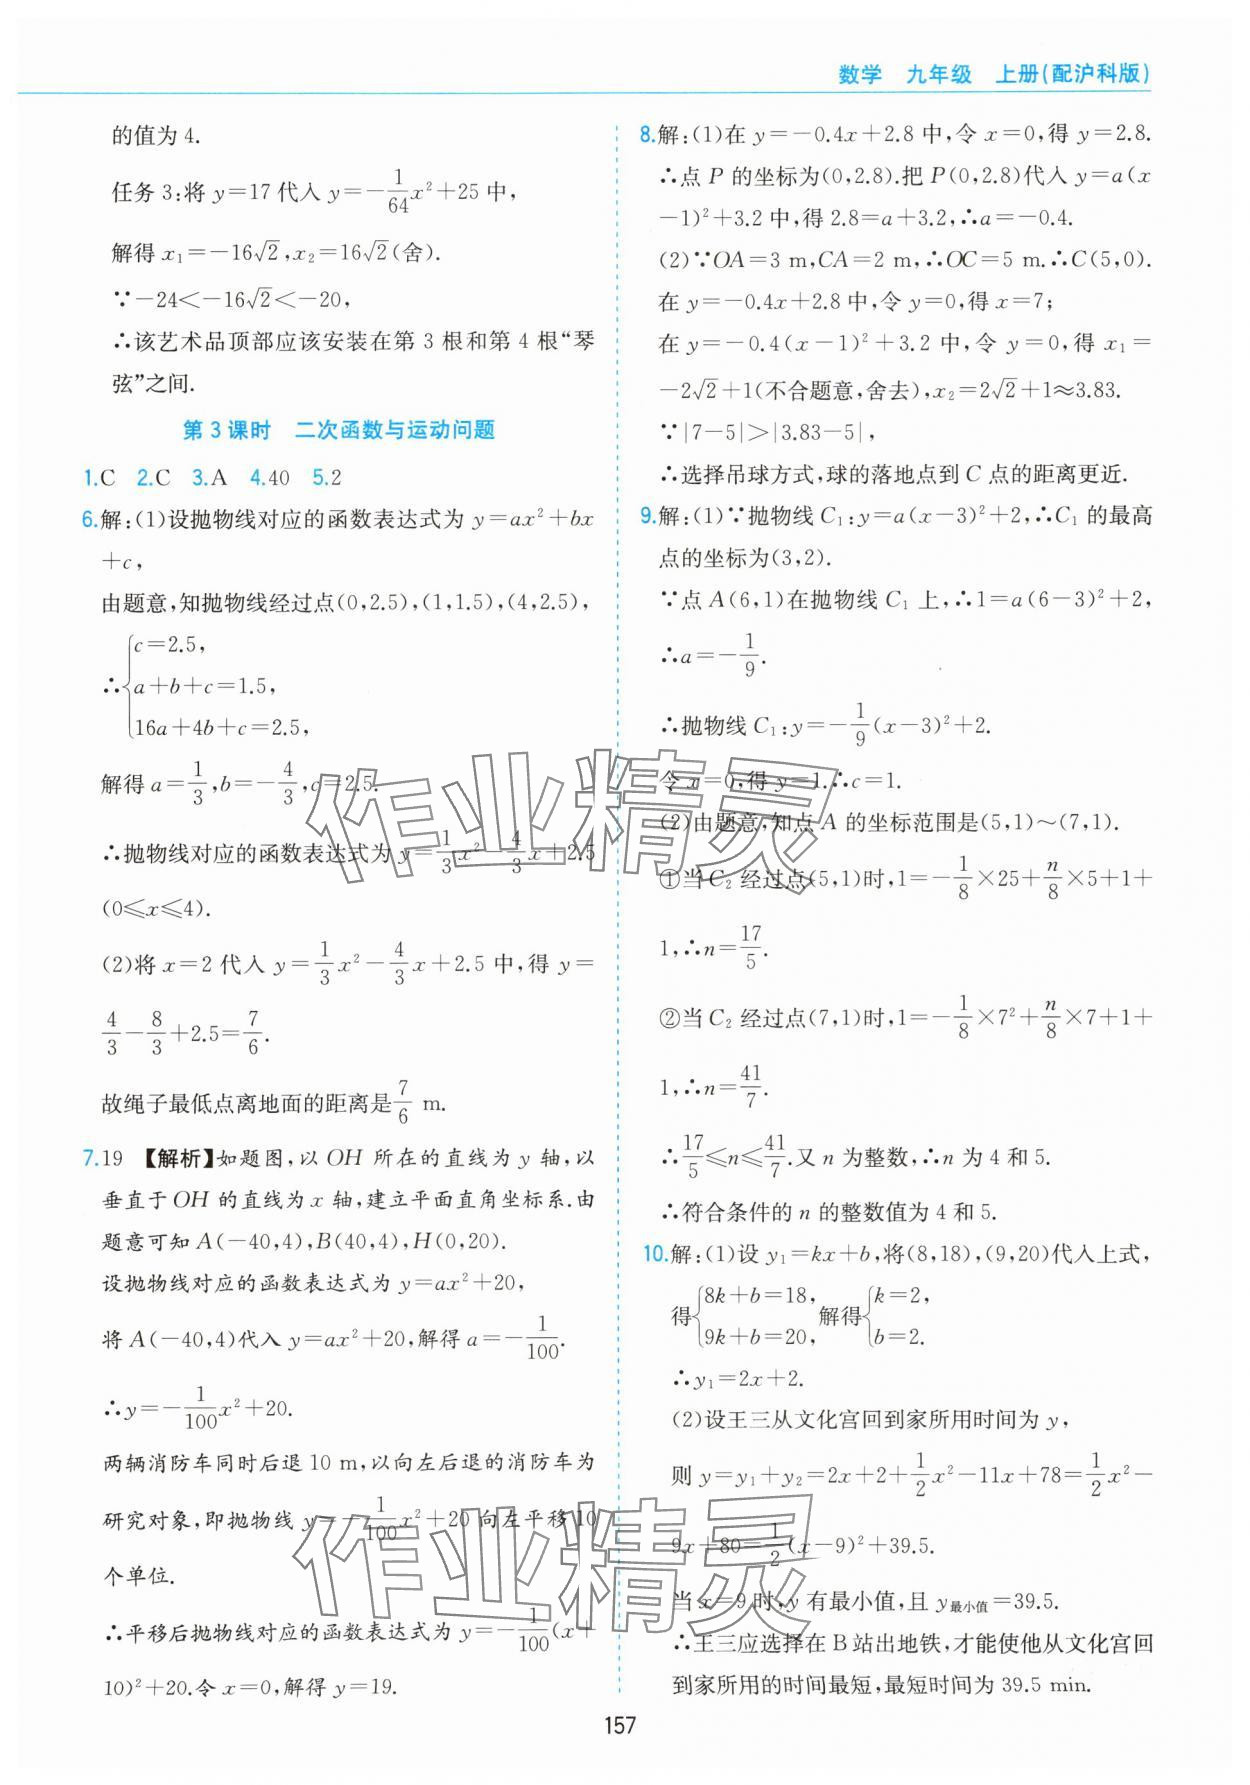 数学　九年级　上册(配沪科版)
的值为 4.
任务 3:将 y=17 代入 y=-1/64x²+25 中,
解得 x₁=-16√2,x₂=16√2(舍).
∵-24<-16√2<-20,
∴该艺术品顶部应该安装在第 3 根和第 4 根“琴
弦”之间.
第 3 课时　二次函数与运动问题
1.C　2.C　3.A　4.40　5.2
6.解:(1)设抛物线对应的函数表达式为 y=ax²+bx
+c,
由题意,知抛物线经过点(0,2.5),(1,1.5),(4,2.5),
∴{c=2.5,
a+b+c=1.5,
16a+4b+c=2.5,
解得 a=1/3,b=-4/3,c=2.5.
∴抛物线对应的函数表达式为 y=1/3x²-4/3x+2.5
(0≤x≤4).
(2)将 x=2 代入 y=1/3x²-4/3x+2.5 中,得 y=
4/3-8/3+2.5=7/6.
故绳子最低点离地面的距离是7/6 m.
7.19　【解析】如题图,以 OH 所在的直线为 y 轴,以
垂直于 OH 的直线为 x 轴,建立平面直角坐标系.由
题意可知 A(-40,4),B(40,4),H(0,20).
设抛物线对应的函数表达式为 y=ax²+20,
将 A(-40,4)代入 y=ax²+20,解得 a=-1/100.
∴y=-1/100x²+20.
两辆消防车同时后退 10 m,以向左后退的消防车为
研究对象,即抛物线 y=-1/100x²+20 向左平移 10
个单位.
∴平移后抛物线对应的函数表达式为 y=-1/100(x+
10)²+20.令 x=0,解得 y=19.
8.解:(1)在 y=-0.4x+2.8 中,令 x=0,得 y=2.8.
∴点 P 的坐标为(0,2.8).把 P(0,2.8)代入 y=a(x
-1)²+3.2 中,得 2.8=a+3.2,∴a=-0.4.
(2)∵OA=3 m,CA=2 m,∴OC=5 m.∴C(5,0).
在 y=-0.4x+2.8 中,令 y=0,得 x=7;
在 y=-0.4(x-1)²+3.2 中,令 y=0,得 x₁=
-2√2+1(不合题意,舍去),x₂=2√2+1≈3.83.
∵|7-5|>|3.83-5|,
∴选择吊球方式,球的落地点到 C 点的距离更近.
9.解:(1)∵抛物线 C₁:y=a(x-3)²+2,∴C₁ 的最高
点的坐标为(3,2).
∵点 A(6,1)在抛物线 C₁ 上,∴1=a(6-3)²+2,
∴a=-1/9.
∴抛物线 C₁:y=-1/9(x-3)²+2.
令 x=0,得 y=1.∴c=1.
(2)由题意,知点 A 的坐标范围是(5,1)～(7,1).
①当 C₂ 经过点(5,1)时,1=-1/8×25+n/8×5+1+
1,∴n=17/5.
②当 C₂ 经过点(7,1)时,1=-1/8×7²+n/8×7+1+
1,∴n=41/7.
∴17/5≤n≤41/7.又 n 为整数,∴n 为 4 和 5.
∴符合条件的 n 的整数值为 4 和 5.
10.解:(1)设 y₁=kx+b,将(8,18),(9,20)代入上式,
得{8k+b=18, 9k+b=20,解得{k=2, b=2.
∴y₁=2x+2.
(2)设王三从文化宫回到家所用时间为 y,
则 y=y₁+y₂=2x+2+1/2x²-11x+78=1/2x²-
9x+80=1/2(x-9)²+39.5.
当 x=9 时,y 有最小值,且 y最小值=39.5.
∴王三应选择在 B 站出地铁,才能使他从文化宫回
到家所用的时间最短,最短时间为 39.5 min.
作业精灵
作业精灵
157